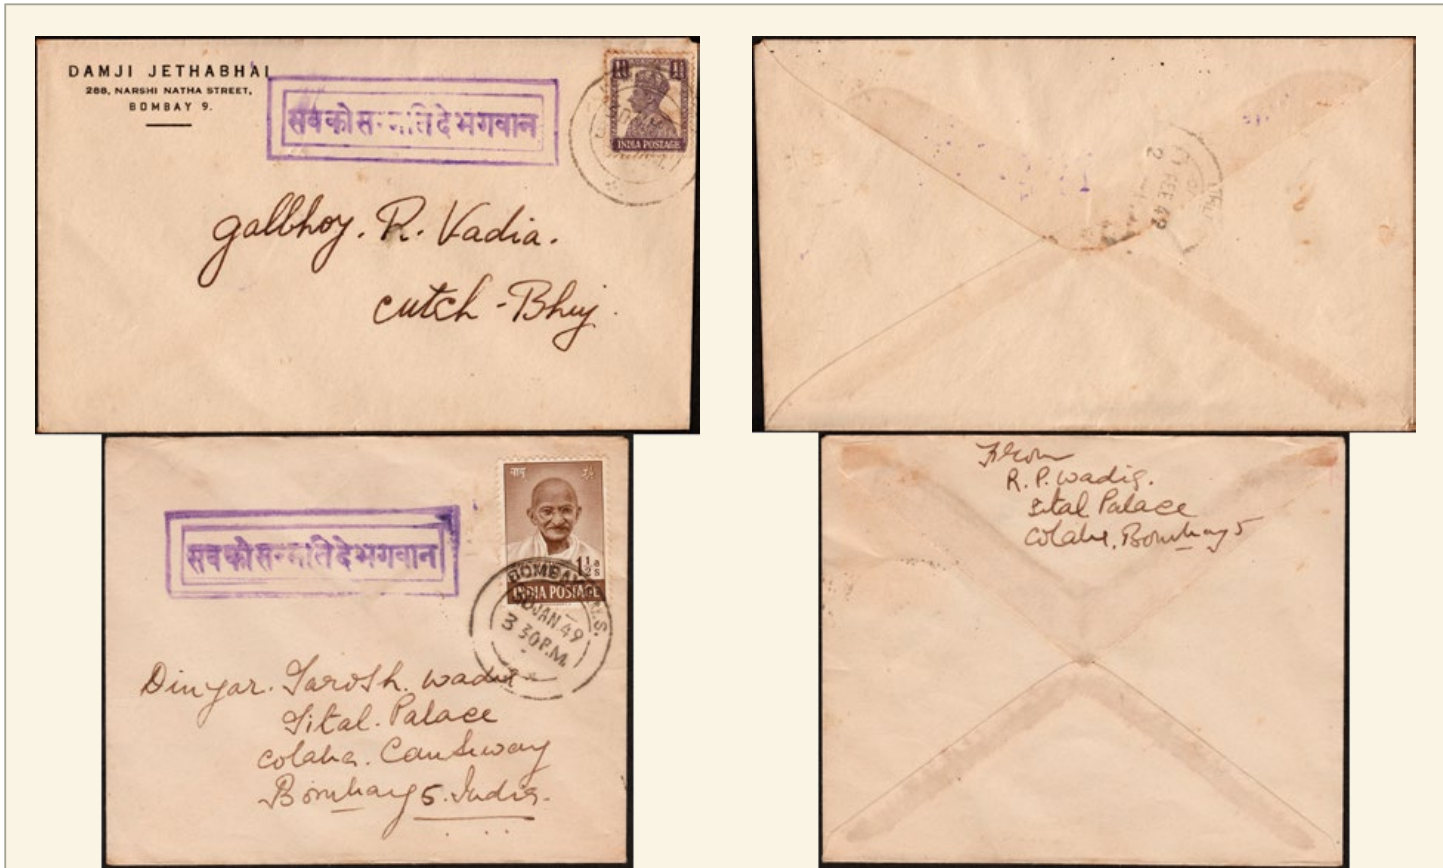 DAMJI JETHABHAI
288, NARSHI NATHA STREET,
BOMBAY 9.
सब को सन्मति दे भगवान
INDIA POSTAGE
galbhoy. R. Vadia.
cutch - Bhuj.
FEB 49
सब को सन्मति दे भगवान
बापू
1½ as
INDIA POSTAGE
BOMBAY G.P.O.
30 JAN 49
3 30 P.M.
Dinyar. Sarosh. Wadia
Sital. Palace
Colaba. Causeway
Bombay 5. India.
From
R. P. Wadia.
Sital Palace
Colaba, Bombay 5